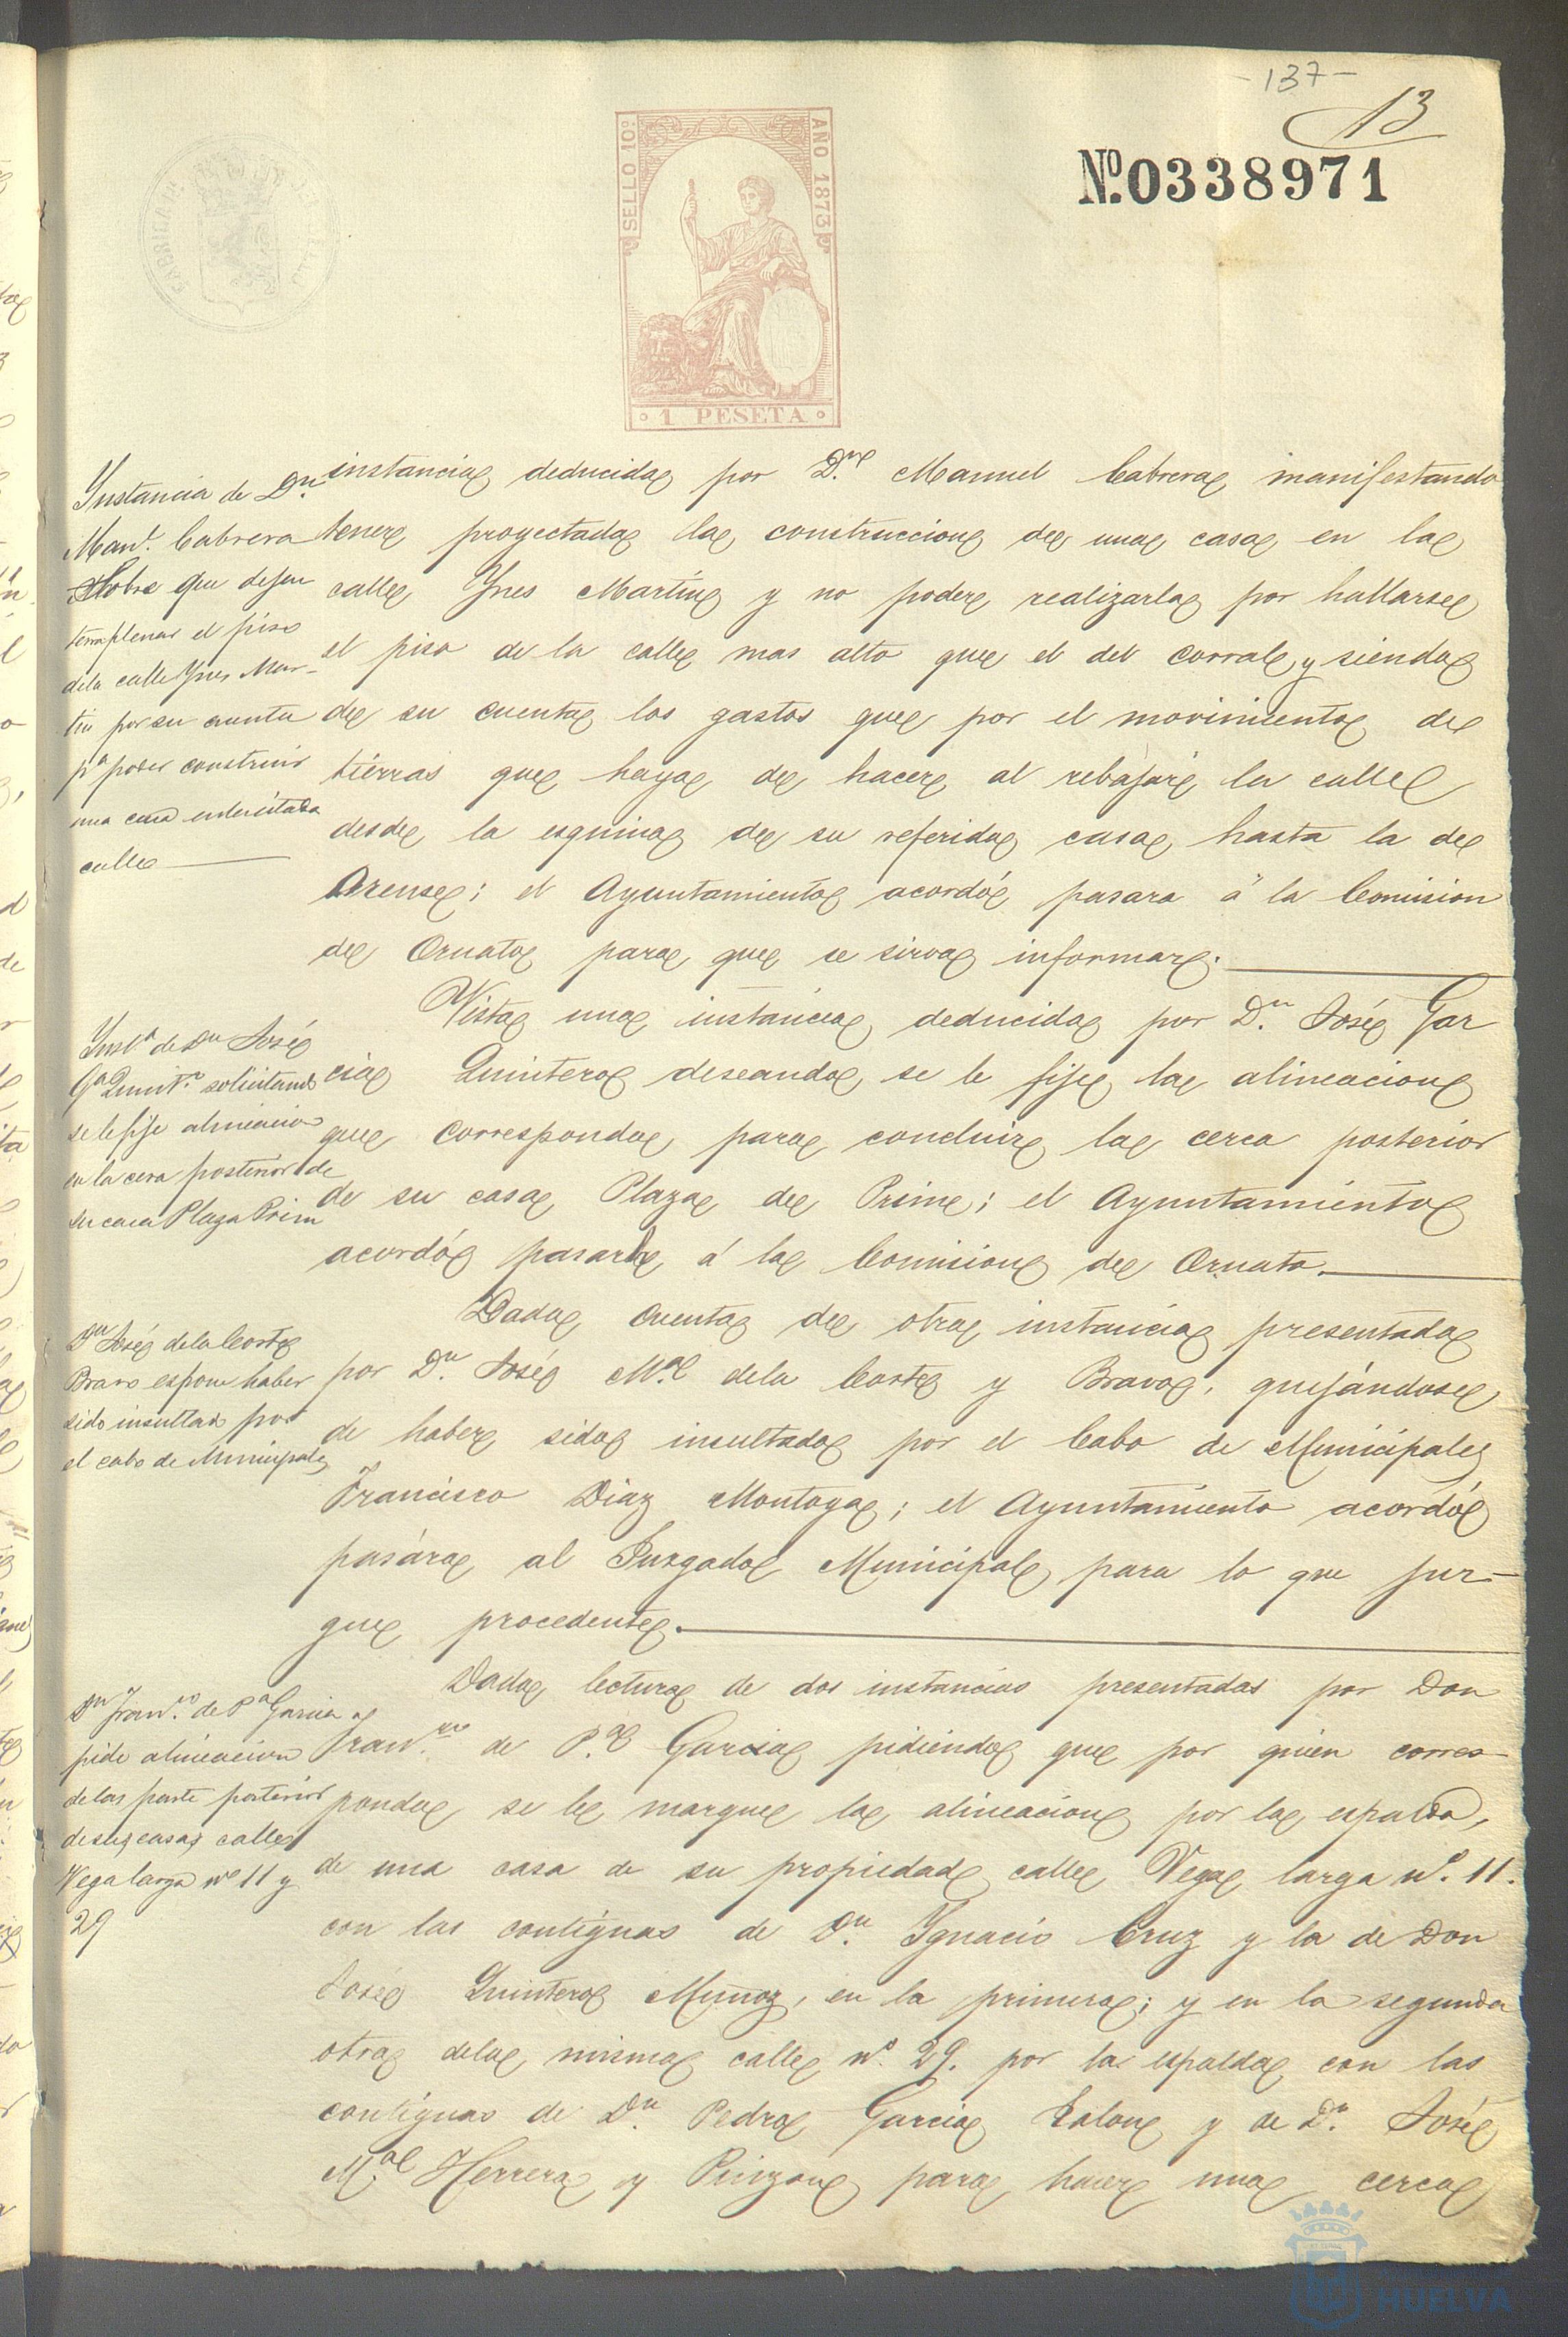 -137-
13
Nº.0338971
SELLO 10º.
AÑO 1873
1 PESETA
Instancia de Dn
Manl. Cabrera
Sobre que dejen
terraplenar el piso
dela calle Ynes Mar-
tin por su cuenta
pa poder construir
una casa en la citada
calle
instancia deducida por Dn. Manuel Cabrera manifestando
tener proyectada la construccion de una casa en la
calle Ynes Martin y no poder realizarla por hallarse
el piso de la calle mas alto que el del corral y siendo
de su cuenta los gastos que por el movimiento de
tierras que haya de hacer al rebajar la calle
desde la esquina de su referida casa hasta la de
Orense; el Ayuntamiento acordó pasara á la Comision
de Ornato para que se sirva informar.
Inста de Dn José
Ga Quintº. solicitando
se le fije alineacion
en la cerca posterior de
su casa Plaza Prim
Vista una instancia deducida por Dn. José Gar
cia Quintero deseando se le fije la alineacion
que corresponda para concluir la cerca posterior
de su casa Plaza de Prim; el Ayuntamiento
acordó pasarla á la Comision de Ornato.
Dn José de la Corte
Bravo espone haber
sido insultado por
el cabo de Municipales
Dada cuenta de otra instancia presentada
por Dn. José Ma. dela Corte y Bravo, quejándose
de haber sido insultado por el Cabo de Municipales
Francisco Diaz Montoya; el Ayuntamiento acordó
pasára al Juzgado Municipal para lo que juz-
gue procedente.
Dn Franco. de Pa Garcia
pide alineacion
de las parte posterior
de sus casas calle
Vega larga nº 11 y
29
Dada lectura de dos instancias presentadas por Don
Franco. de Pa. Garcia pidiendo que por quien corres-
ponda se le marque la alineacion por la espalda,
de una casa de su propiedad calle Vega larga nº. 11.
con las contiguas de Dn. Ygnacio Cruz y la de Don
José Quintero Muñoz, en la primera; y en la segunda
otra dela misma calle nº. 29. por la espalda con las
contiguas de Dn. Pedro Garcia Jalon y de Dn. José
Ma. Herrera y Pinzon para hacer una cerca
HUELVA